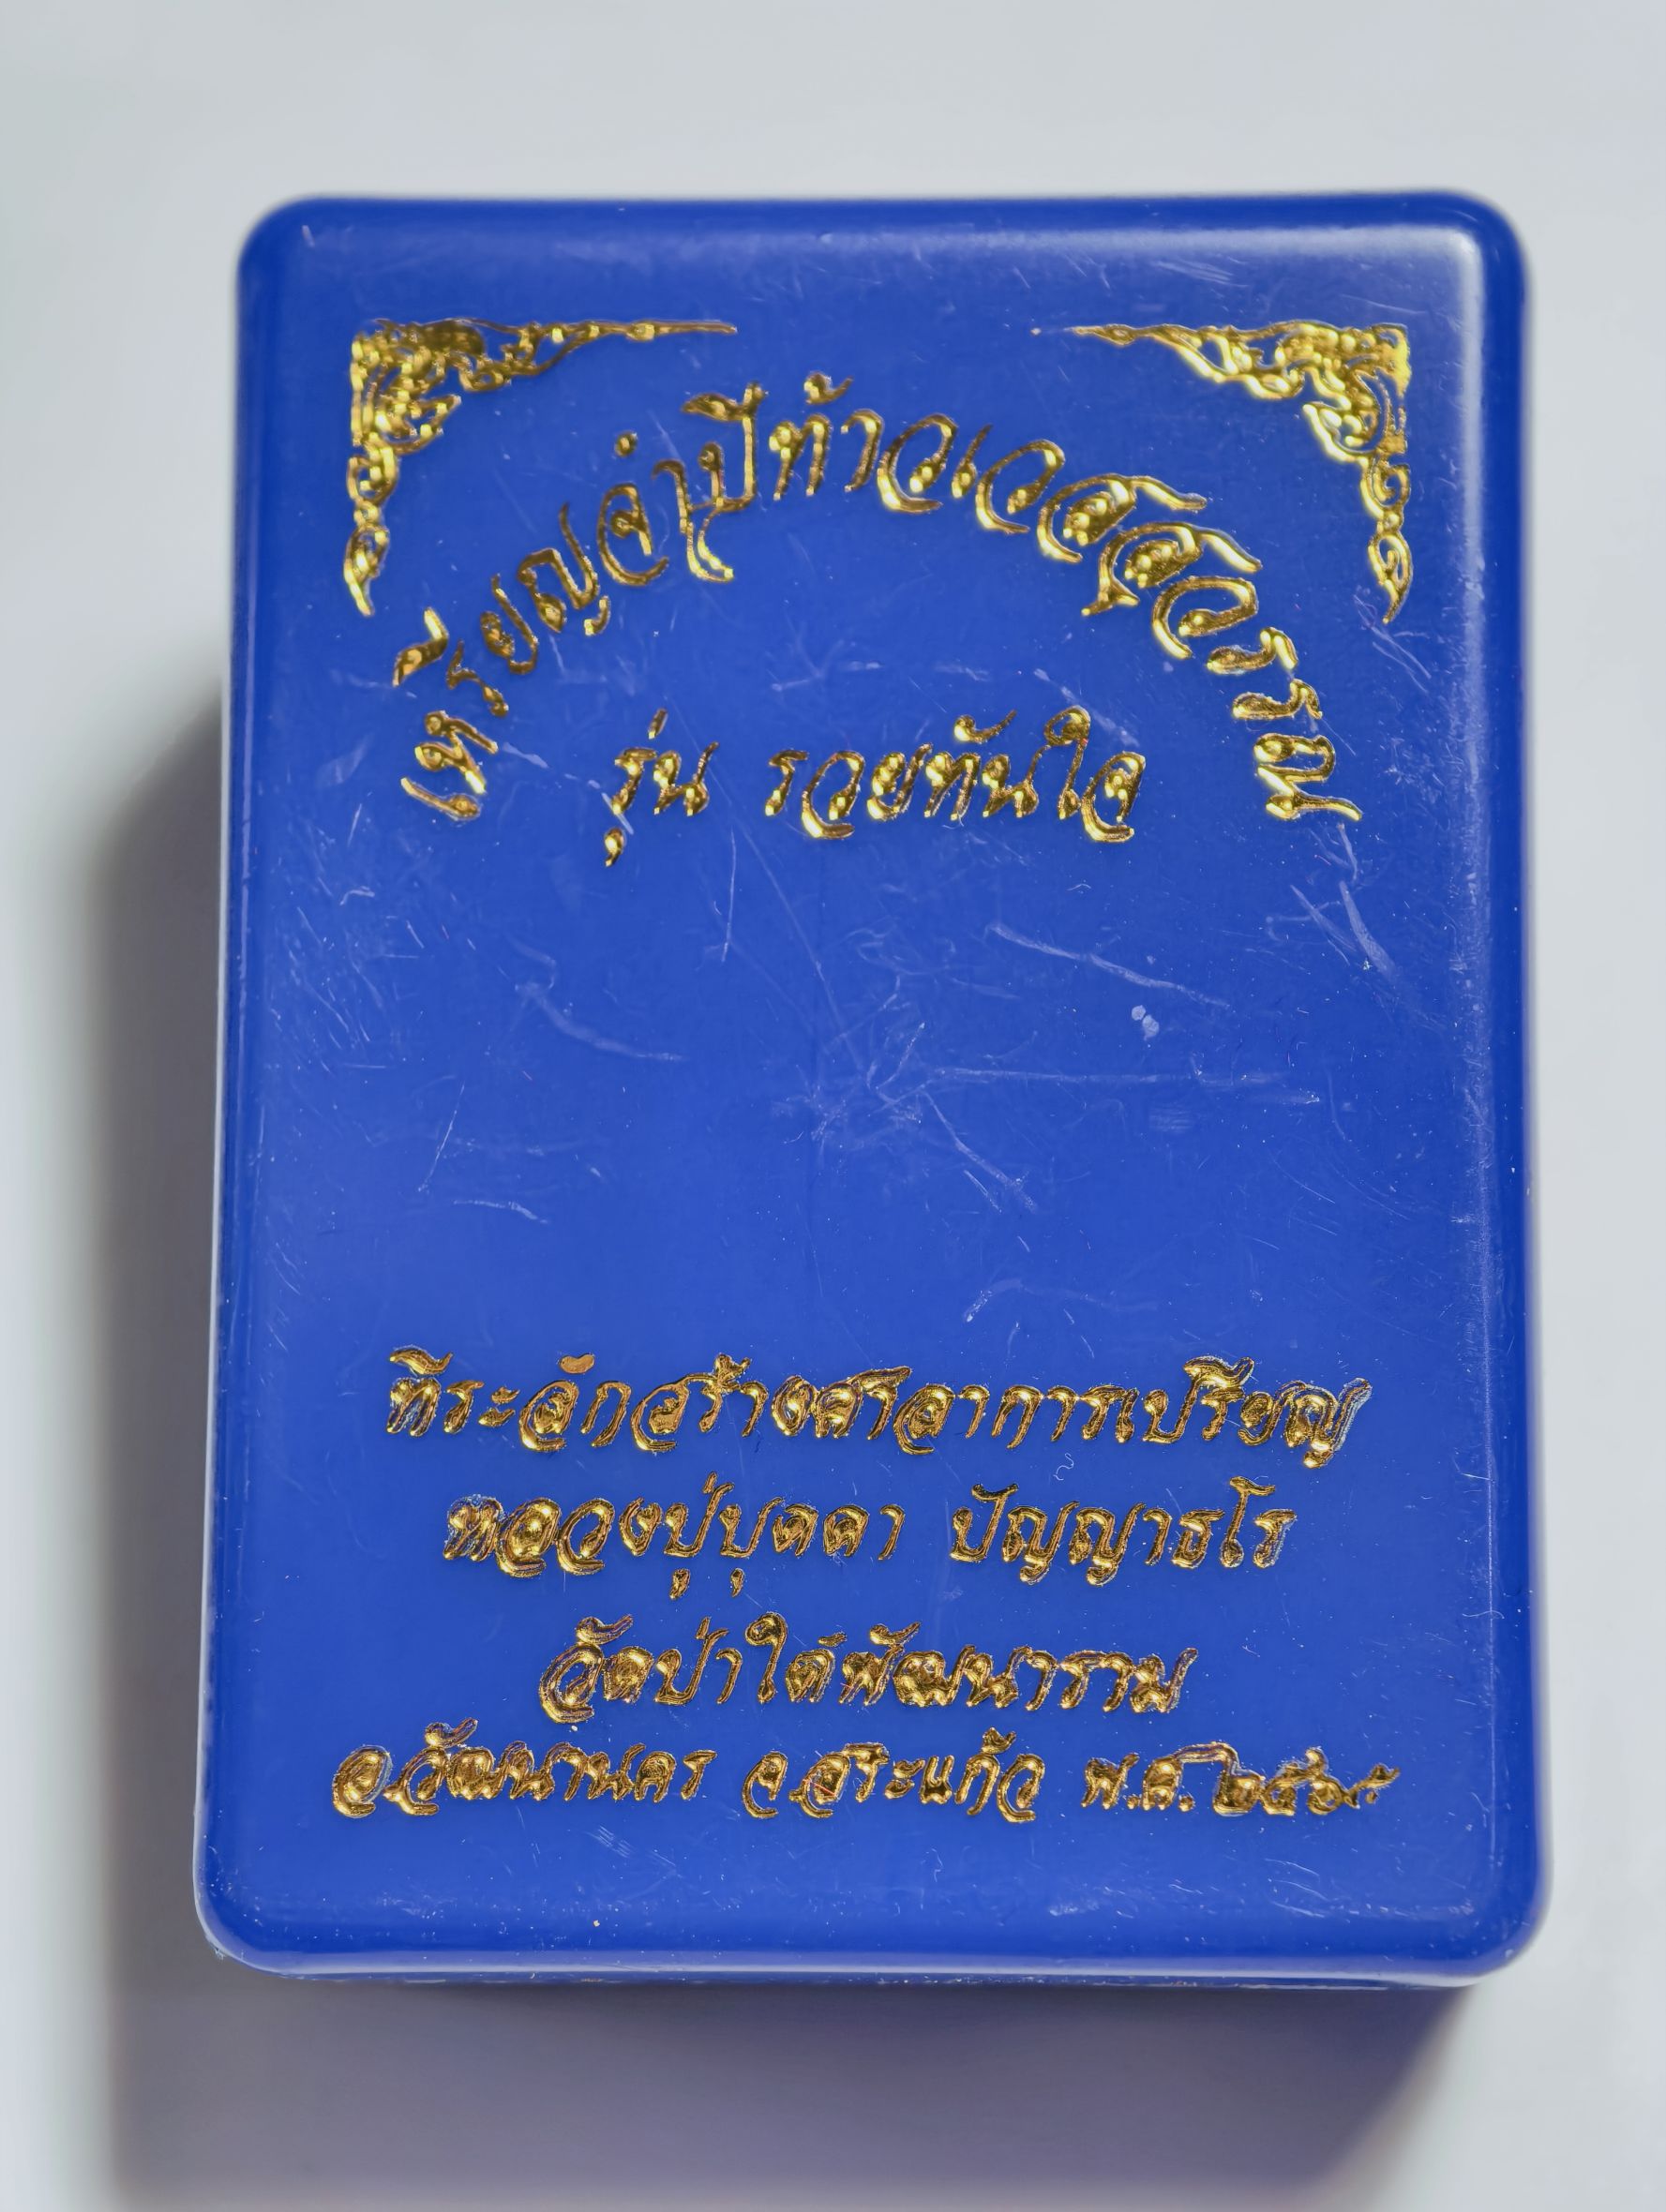 เหรียญจำปีท้าวเวสสุวรรณ
รุ่น รวยทันใจ
ที่ระลึกสร้างศาลาการเปรียญ
หลวงปู่บุดดา ปัญญาธโร
วัดป่าใต้พัฒนาราม
อ.วัฒนานคร จ.สระแก้ว พ.ศ.